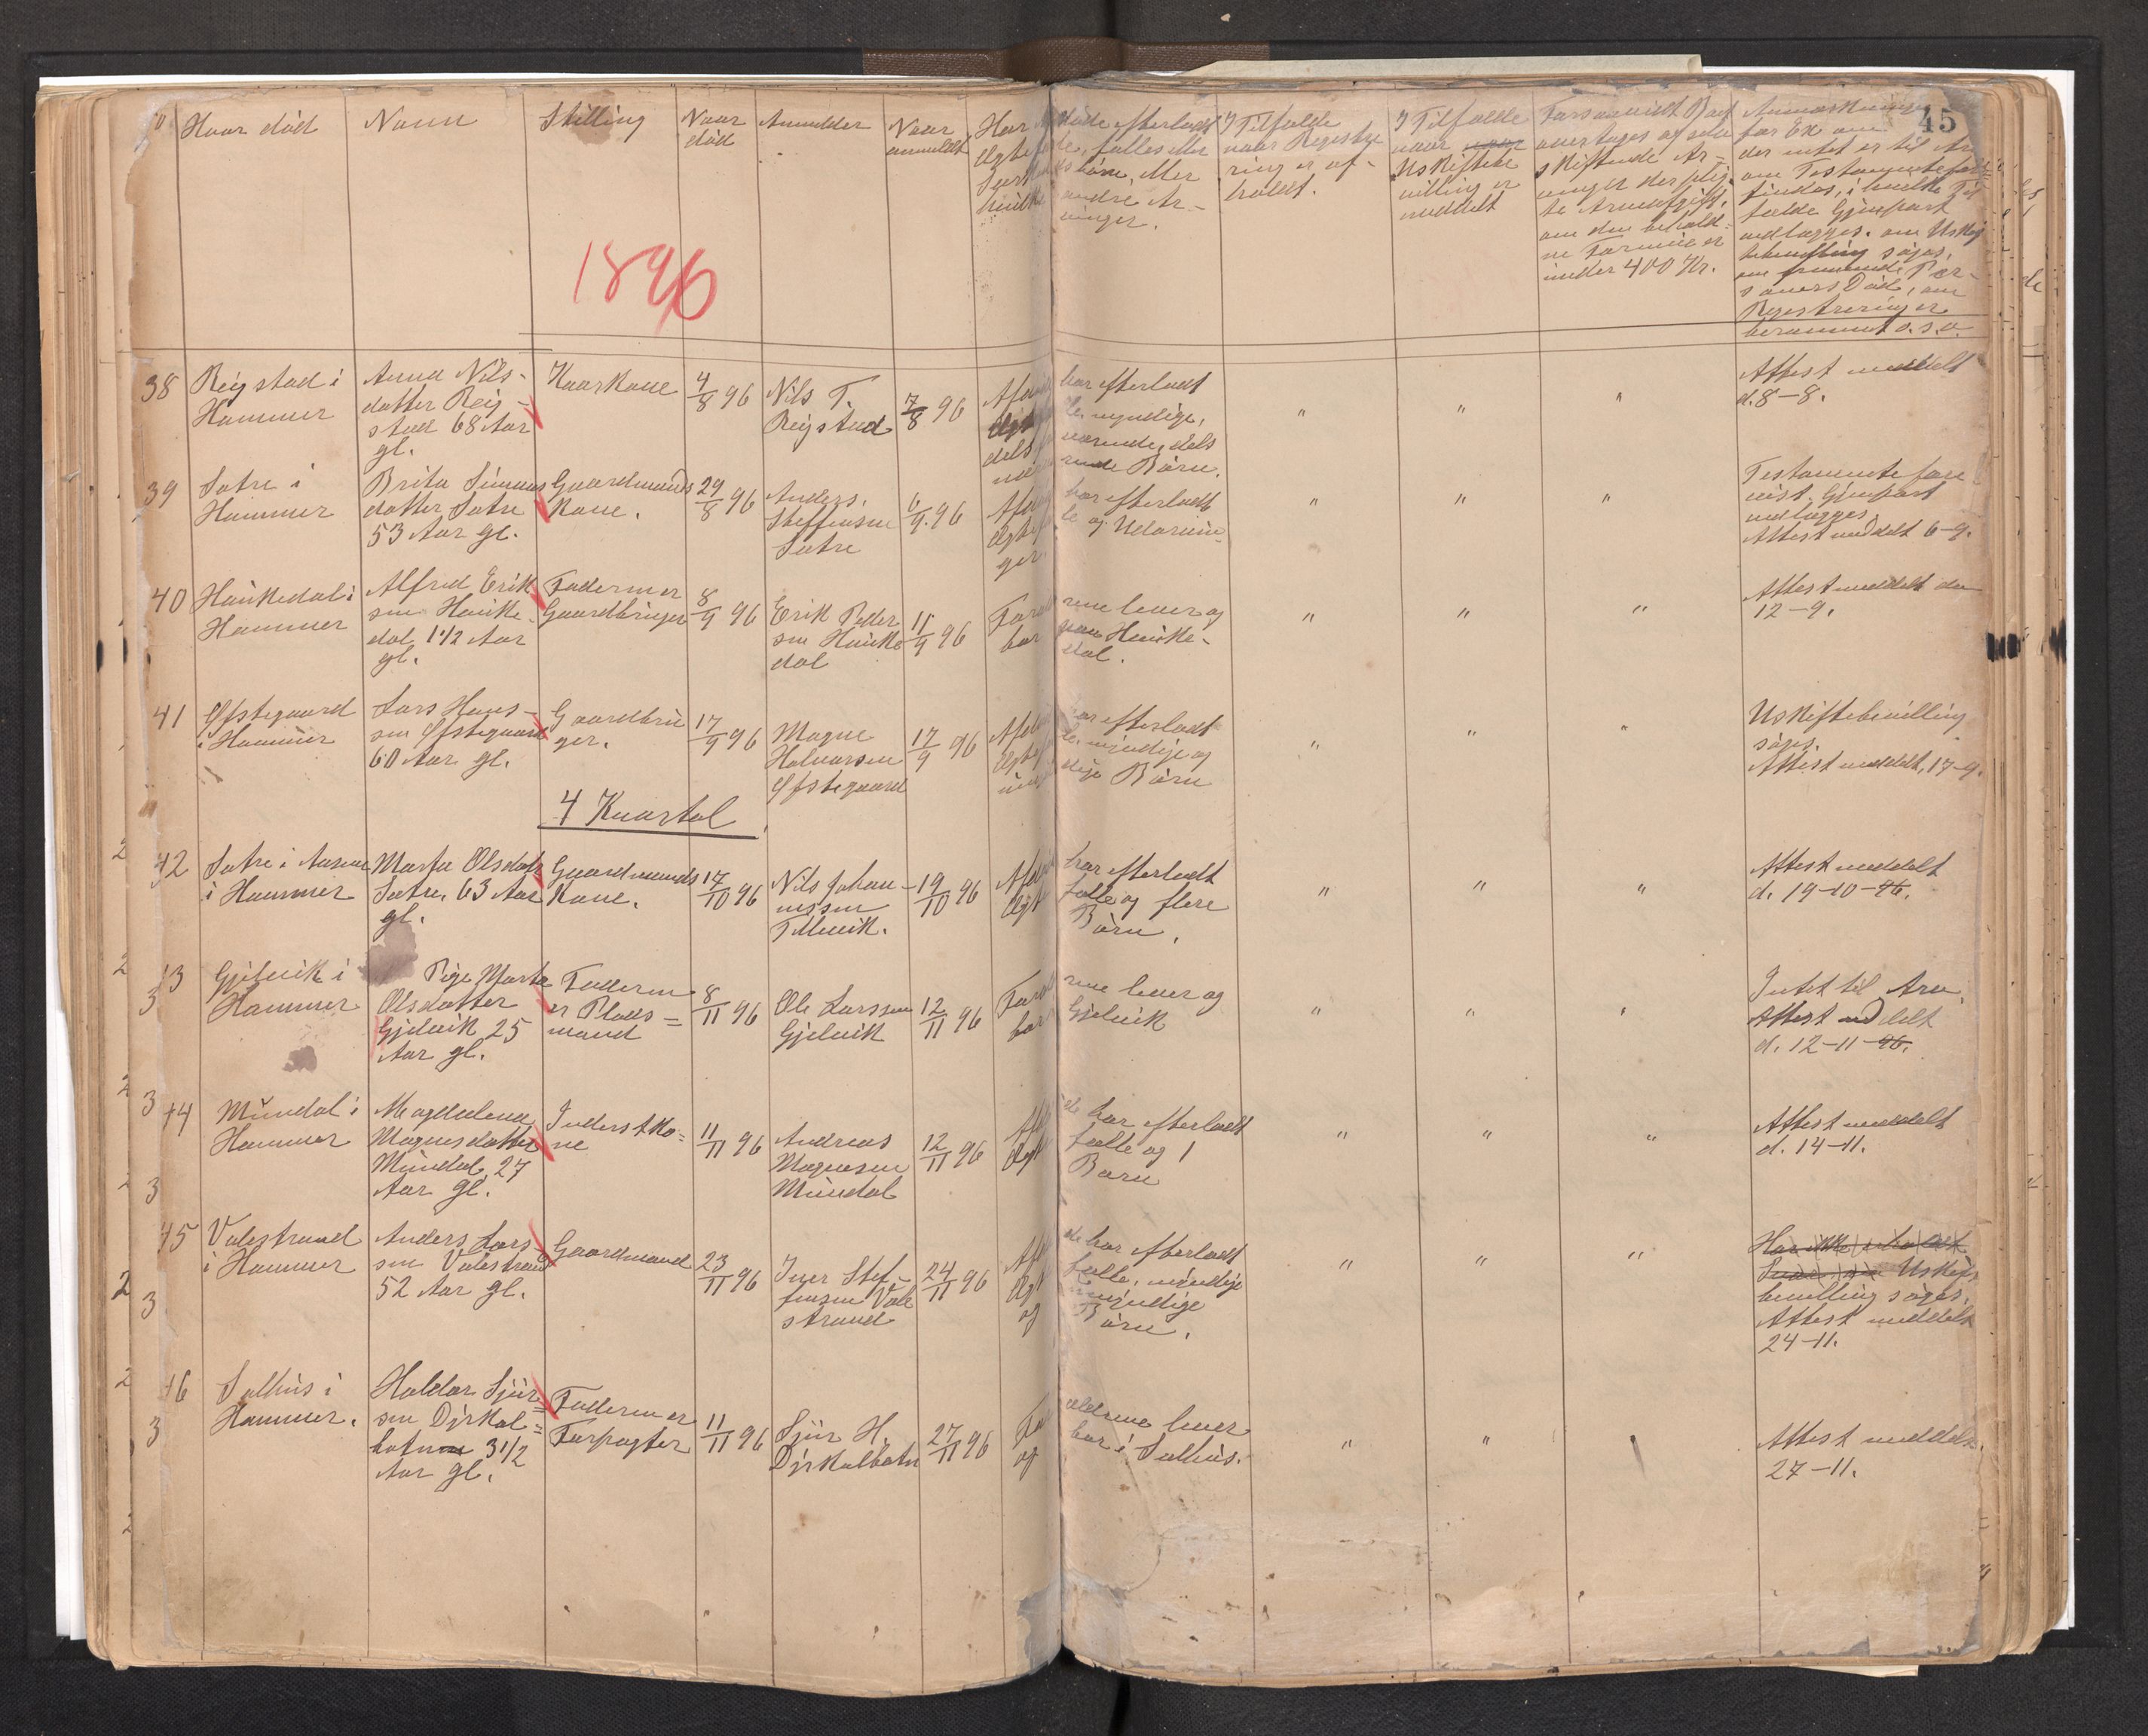 45
Hvor død
Navn
Stilling
Naar
død
Anmelder
Naar
anmeldt
Har
døde efterladt
Ægtefælle, fælles eller
Særkuldsbørn eller
andre Ar-
vinger.
I Tilfælde
naar Registre
ring er af-
holdt.
I Tilfælde
naar
Uskiftebe
villing er
meddelt
Forsaavidt Boet
overtages af selv
skiftende Ar-
vinger
te Arveafgift,
om den behold-
ne Formue er
under 400 Kr.
Anmærkninger
for Ex om
der intet er til Arv
om Testamente
findes, i hvilke Til
fælde Gjenpart
vedlægges. om Uskif
tebevilling søges,
om fraværende Per-
soners Død, om
Registrering er
berammet o.s.v.
1896
38
Reigstad i
Hammer
Anna Nils-
datter Reig-
stad 68 Aar
gl.
Kaarkone
4/8 96
Nils T.
Reigstad
7/8 96
Afdøde har efterladt
Ægtefælle, myndige,
dels nærværende, dels
Børn.
"
"
"
Attest meddelt
d. 8-8.
39
Satre i
Hammer
Brita Simons
datter Satre
53 Aar gl.
Gaardmands
Kone.
29/8 96
Anders
Steffensen
Satre
6/9 96
Afdøde har efterladt
Ægtefælle og Udarvin-
ger.
"
"
"
Testamente fore
vist. Gjenpart
vedlægges.
Attest meddelt 6-9.
40
Haukedal i
Hammer
Alfred Erik
sen Hauke-
dal, 1 1/2 Aar
gl.
Faderen er
Gaardbruger
8/9 96
Erik Peder
sen Hauke
dal
11/9 96
Forældrene lever og
bor paa Hauke-
dal.
"
"
"
Attest meddelt den
12-9.
41
Øfstegaard
i Hammer
Lars Hans-
sen Øfstegaard
60 Aar gl.
Gaardbru
ger.
17/9 96
Magne
Halvorsen
Øfstegaard
17/9 96
Afdøde har efterladt
Ægtefælle, myndige og
umyndige Børn
"
"
"
Uskiftebevilling
søges.
Attest meddelt, 17-9.
4 Kvartal
42
Satre i Aasene
i Hammer
Marta Olsdatr
Satre, 63 Aar
gl.
Gaardmands
Kone.
17/10 96
Nils Johan-
nessen
Tellevik.
19/10 96
Afdøde har efterladt
Ægtefælle og flere
Børn.
"
"
"
Attest meddelt
d. 19-10-96.
43
Gjelvik i
Hammer
Pige Marta
Olsdatter
Gjelvik 25
Aar gl.
Faderen
er Plads=
mand
8/11 96
Ole Larssen
Gjelvik
12/11 96
Forældrene lever og
bor Gjelvik
"
"
"
Intet til Arv.
Attest meddelt
d. 12-11-96.
44
Mundal i
Hammer
Magdalena
Magnesdatter
Mundal, 27
Aar gl.
Inderstko=
ne
11/11 96
Andreas
Magnesen
Mundal
12/11 96
Afdøde har efterladt
Ægtefælle og 1
Barn
"
"
"
Attest meddelt
d. 14-11.
45
Valestrand
i Hammer
Anders Lars-
sen Valestrand
52 Aar gl.
Gaardmand
23/11 96
Iver Stef-
fensen Vale
strand
24/11 96
Afdøde har efterladt
Ægtefælle, myndige
og umyndige
Børn.
"
"
"
Uskifte
bevilling søges.
Attest meddelt
24-11.
46
Salhus i
Hammer.
Haldor Sjur=
sen Dyrkol=
botn 3 1/2
Aar gl.
Faderen er
Forpagter
11/11 96
Sjur H.
Dyrkolbotn
27/11 96
Forældrene lever
og bor i Salhus.
"
"
Attest meddelt
27-11.